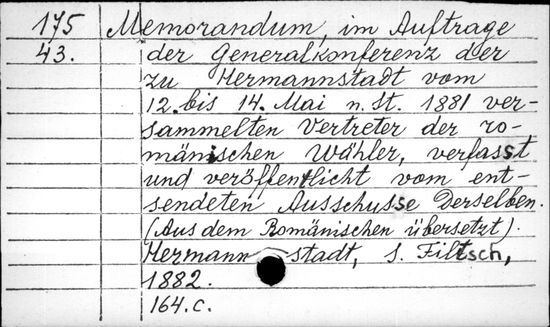 175 Memorandum, im Auftrage
43. der Generalkonferenz der
zu Hermannstadt vom
12. bis 14. Mai n. St. 1881 ver-
sammelten Vertreter der ro-
mänischen Wähler, verfasst
und veröffentlicht vom ent-
sendeten Ausschusse Derselben.
(Aus dem Romänischen übersetzt).
Hermannstadt, S. Filtsch,
1882.
164.c.